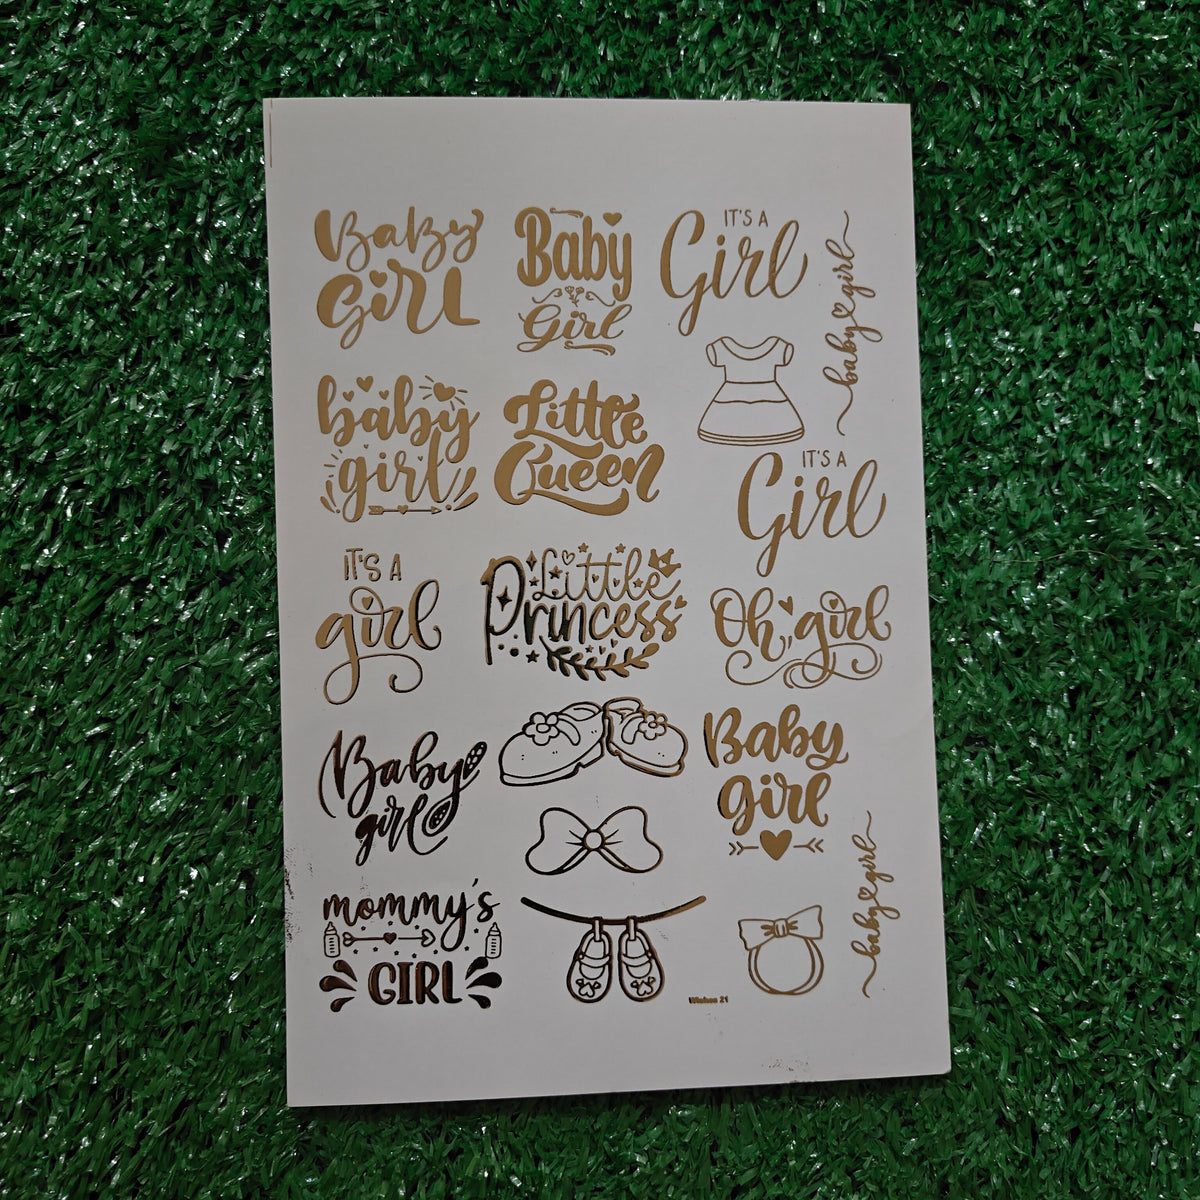 Baby
Girl
Baby
Girl
IT'S A
Girl
baby girl
baby
girl
Little
Queen
IT'S A
Girl
IT'S A
girl
Little
Princess
Oh, girl
Baby
girl
Baby
girl
mommy's
GIRL
baby girl
Wishes 21